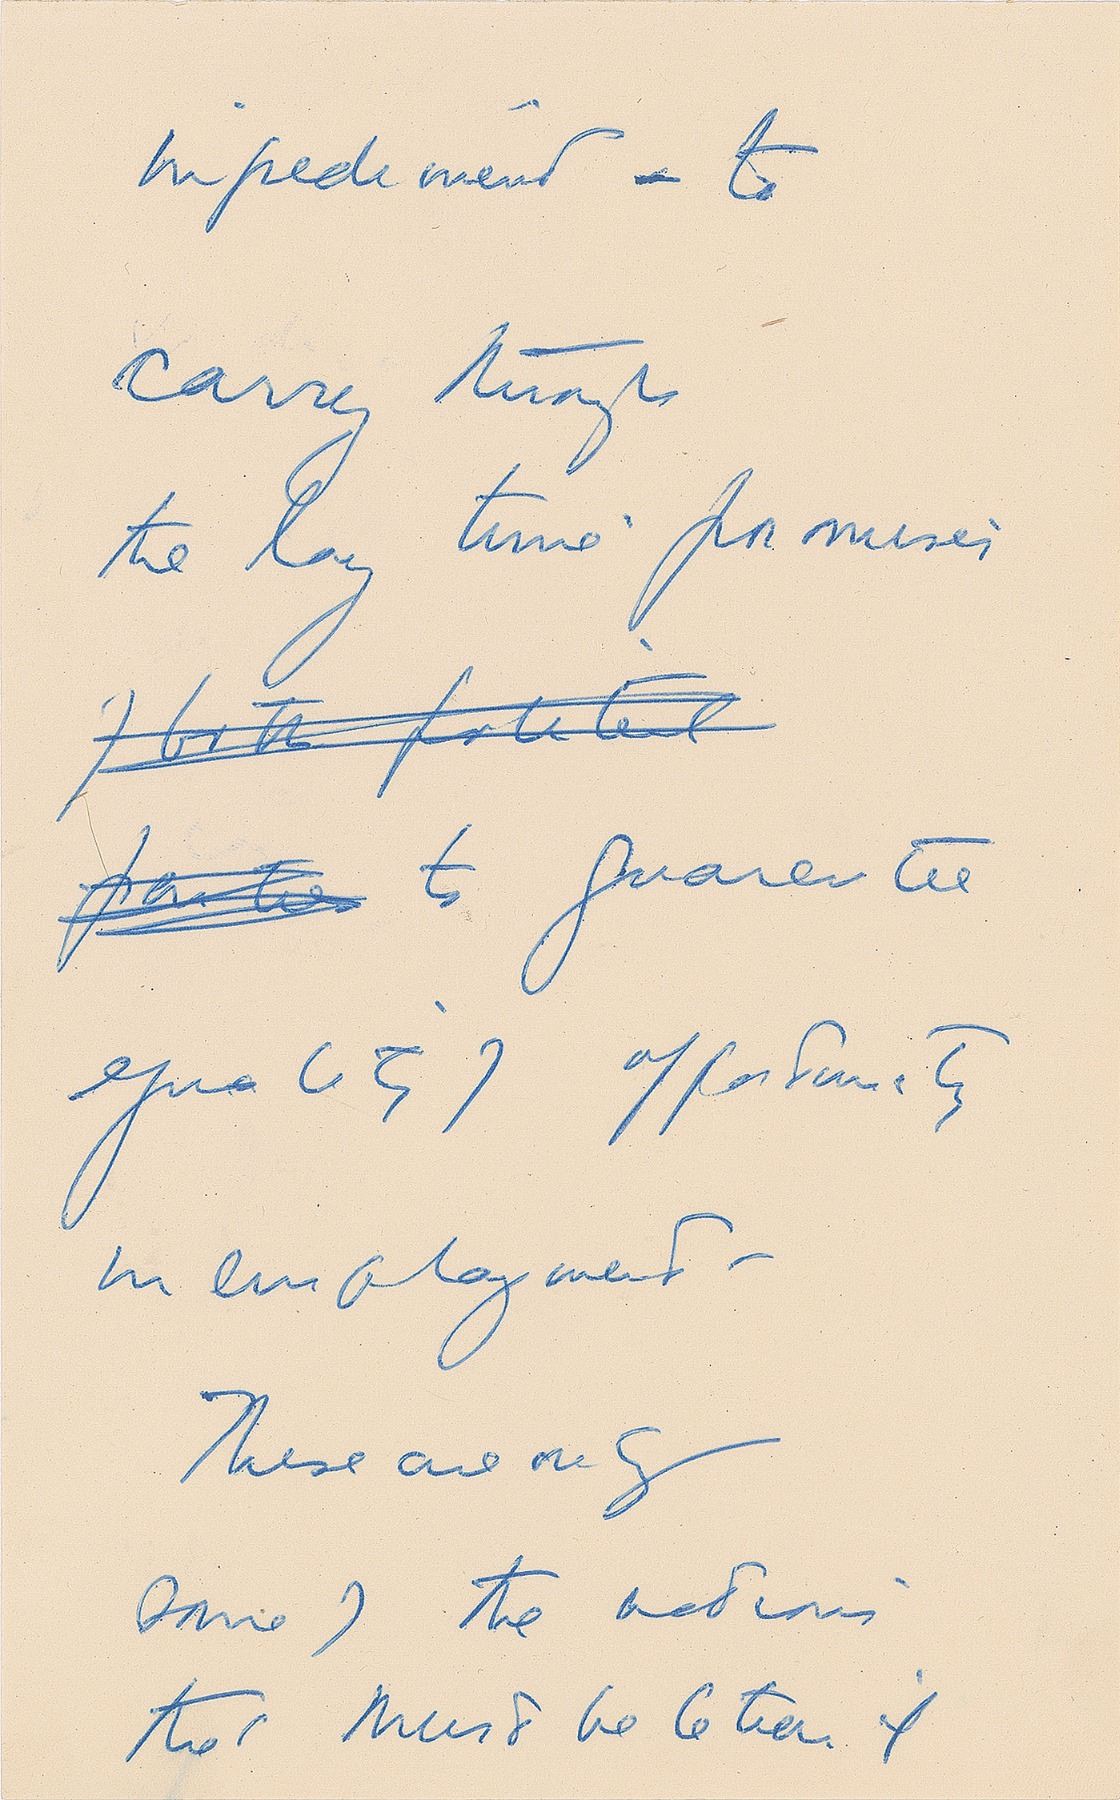 impediment - to
carry through
the long time promises
of both political
parties to guarantee
equality of opportunity
in employment -
These are only
some of the actions
that must be taken if